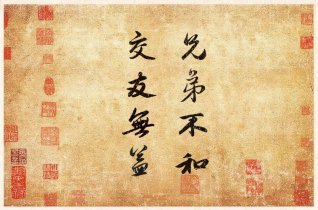 兄弟不和
交友無益